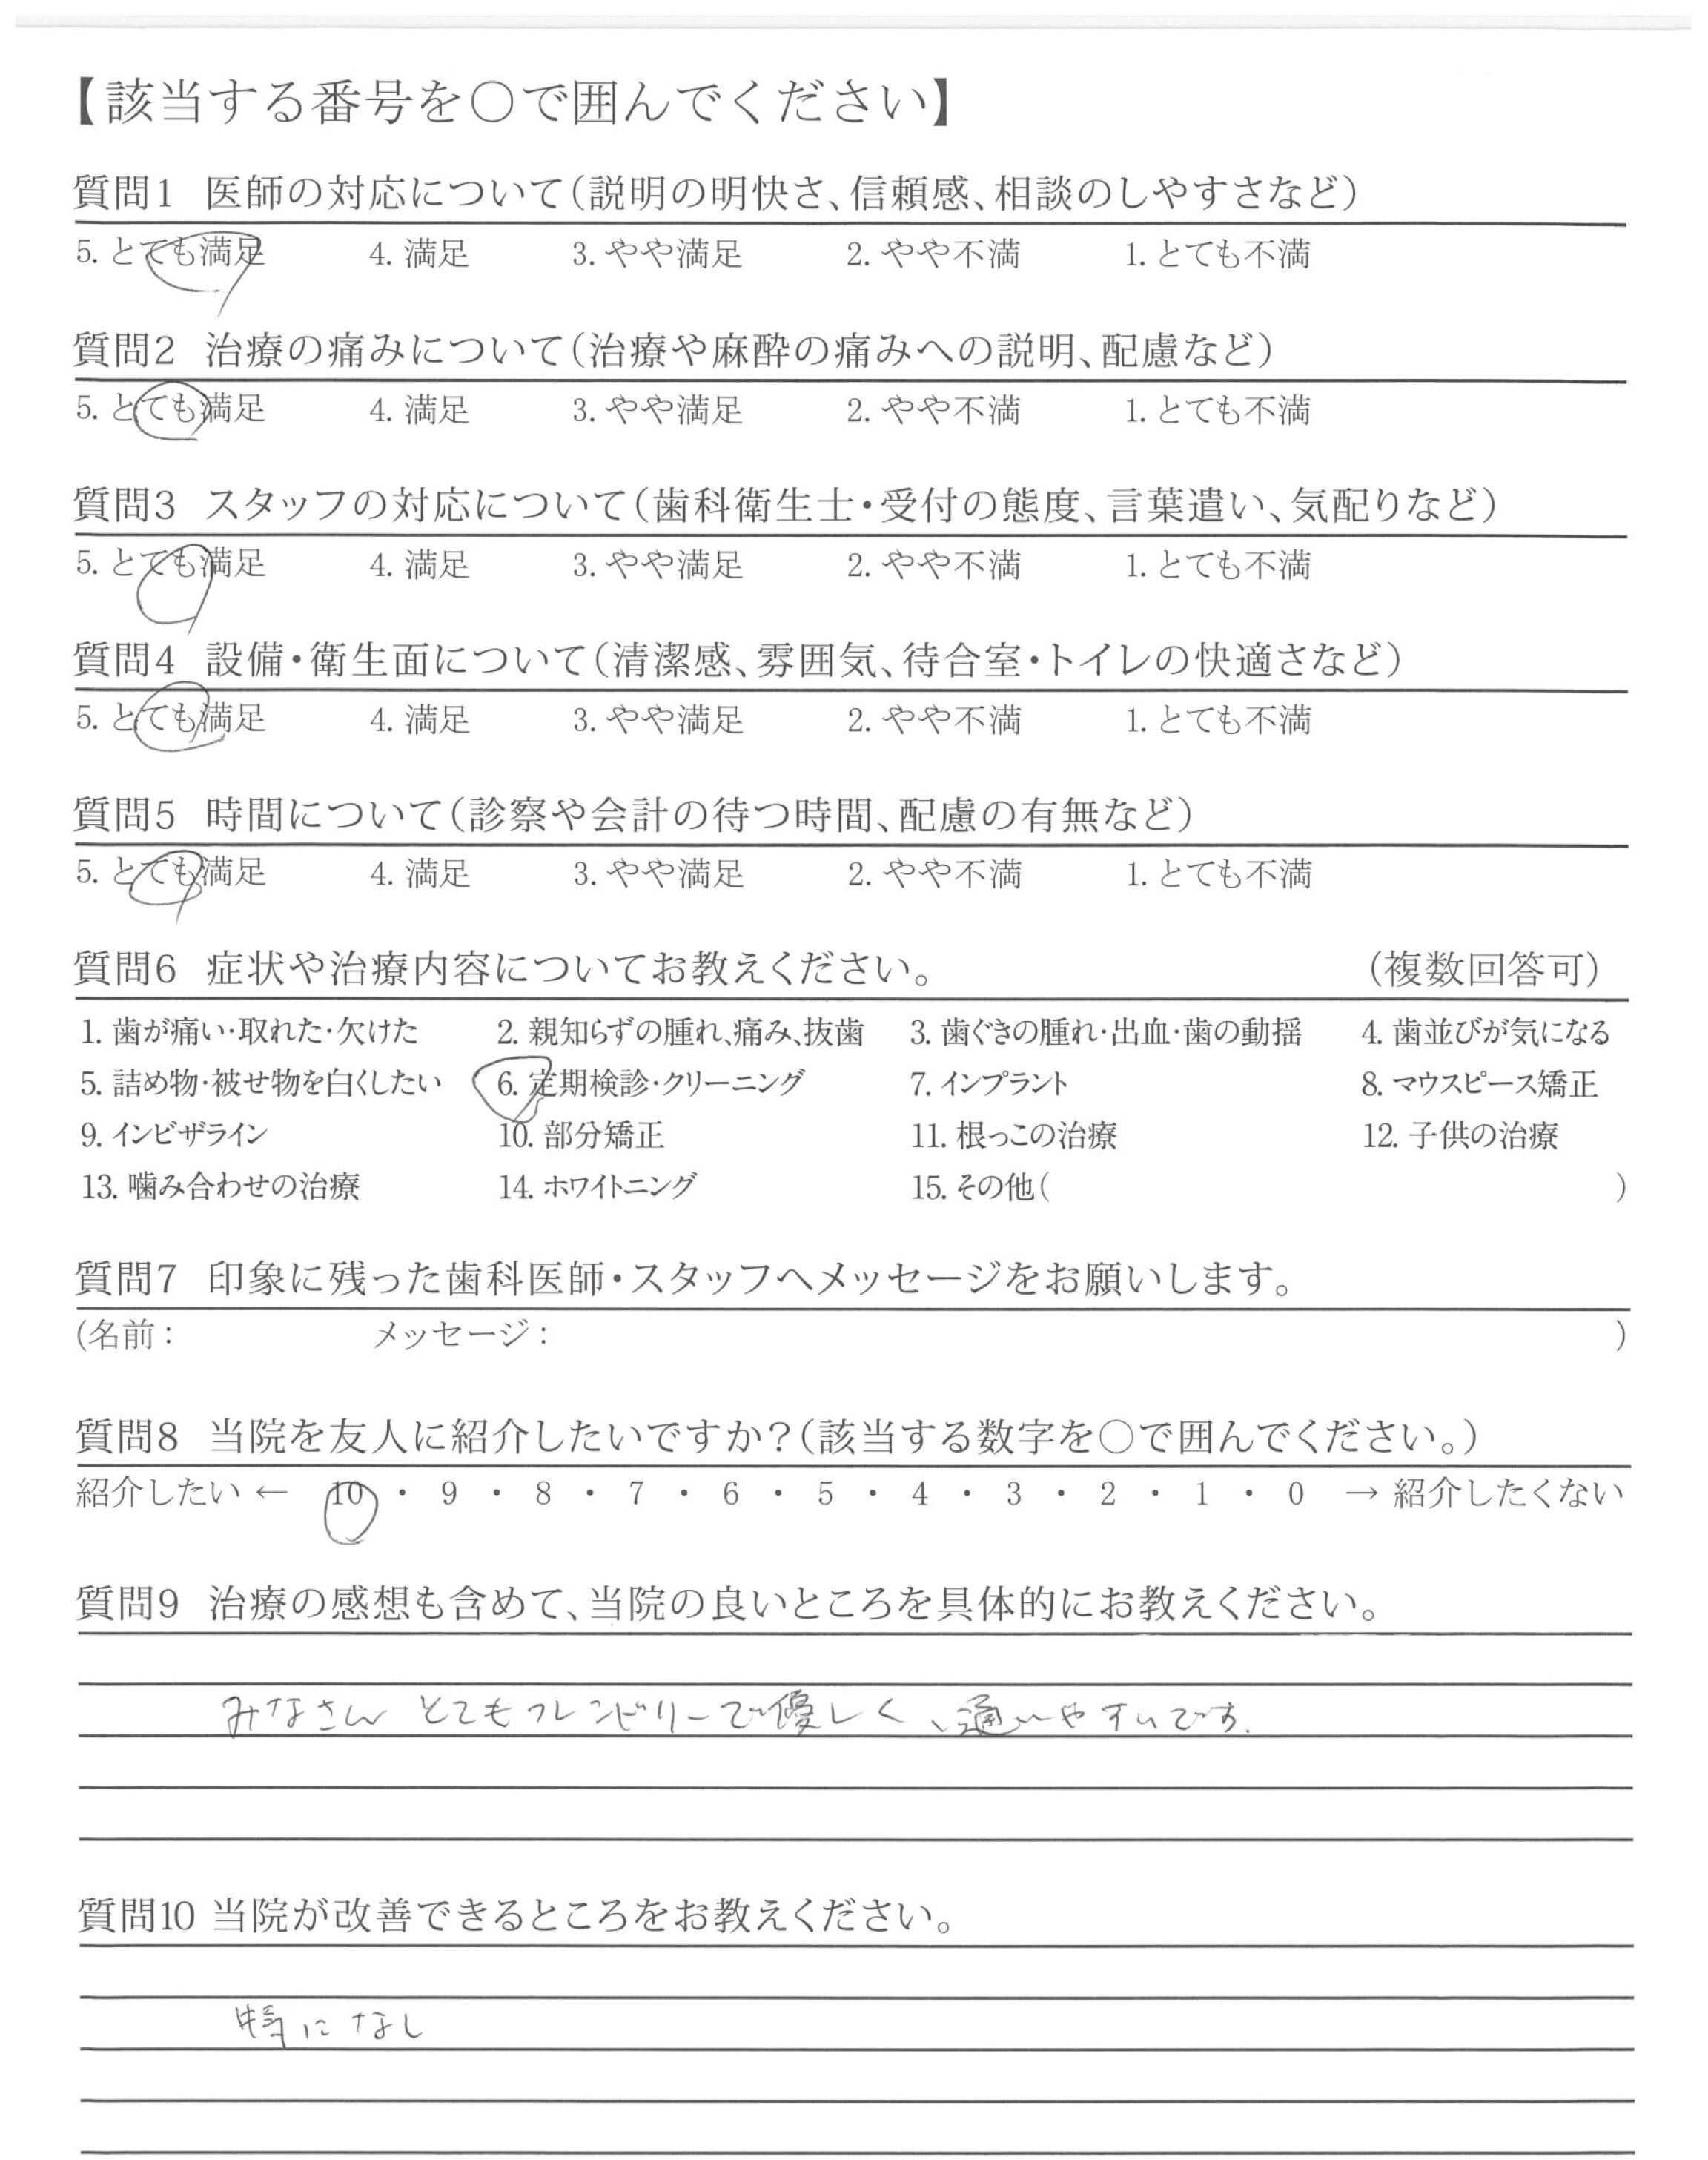 【該当する番号を〇で囲んでください】
質問1 医師の対応について(説明の明快さ、信頼感、相談のしやすさなど)
5. とても満足 4. 満足 3. やや満足 2. やや不満 1. とても不満
質問2 治療の痛みについて(治療や麻酔の痛みへの説明、配慮など)
5. とても満足 4. 満足 3. やや満足 2. やや不満 1. とても不満
質問3 スタッフの対応について(歯科衛生士・受付の態度、言葉遣い、気配りなど)
5. とても満足 4. 満足 3. やや満足 2. やや不満 1. とても不満
質問4 設備・衛生面について(清潔感、雰囲気、待合室・トイレの快適さなど)
5. とても満足 4. 満足 3. やや満足 2. やや不満 1. とても不満
質問5 時間について(診察や会計の待つ時間、配慮の有無など)
5. とても満足 4. 満足 3. やや満足 2. やや不満 1. とても不満
質問6 症状や治療内容についてお教えください。 (複数回答可)
1. 歯が痛い・取れた・欠けた 2. 親知らずの腫れ、痛み、抜歯 3. 歯ぐきの腫れ・出血・歯の動揺 4. 歯並びが気になる
5. 詰め物・被せ物を白くしたい 6. 定期検診・クリーニング 7. インプラント 8. マウスピース矯正
9. インビザライン 10. 部分矯正 11. 根っこの治療 12. 子供の治療
13. 噛み合わせの治療 14. ホワイトニング 15. その他( )
質問7 印象に残った歯科医師・スタッフへメッセージをお願いします。
(名前: メッセージ: )
質問8 当院を友人に紹介したいですか?(該当する数字を〇で囲んでください。)
紹介したい ← 10 ・ 9 ・ 8 ・ 7 ・ 6 ・ 5 ・ 4 ・ 3 ・ 2 ・ 1 ・ 0 → 紹介したくない
質問9 治療の感想も含めて、当院の良いところを具体的にお教えください。
みなさん とてもフレンドリーで優しく、通いやすいです.
質問10 当院が改善できるところをお教えください。
特になし